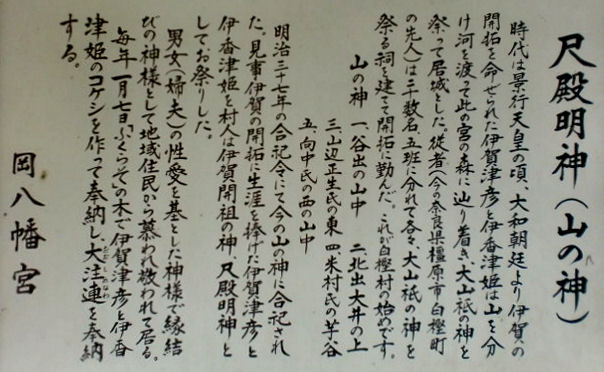 尺殿明神(山の神)
時代は景行天皇の頃、大和朝廷より伊賀の
開拓を命ぜられた伊賀津彦と伊香津姫は山を分
け河を渡って此の宮の森に辿り着き、大山祗の神を
祭って居城とした。従者(今の奈良県橿原市白橿町
の先人)は三十数名、五班に分れて各々、大山祗の神を
祭る祠を建てて開拓に勤んだ。これが白樫村の始めです。
山の神 一、谷出の山中 二、北出大井の上
三、山辺正生氏の東 四、米村氏の芋谷
五、向中氏の西の山中
明治三十七年の合祀令にて今の山の神に合祀され
た。見事伊賀の開拓に生涯を捧げた伊賀津彦と
伊香津姫を村人は伊賀開祖の神、尺殿明神と
してお祭りした。
男女(婦夫)の性愛を基とした神様で縁結
びの神様として地域住民から慕われ敬われて居る。
毎年一月七日ふくらその木で伊賀津彦と伊香
津姫のコケシを作って奉納し大注連を奉納
する。
岡八幡宮